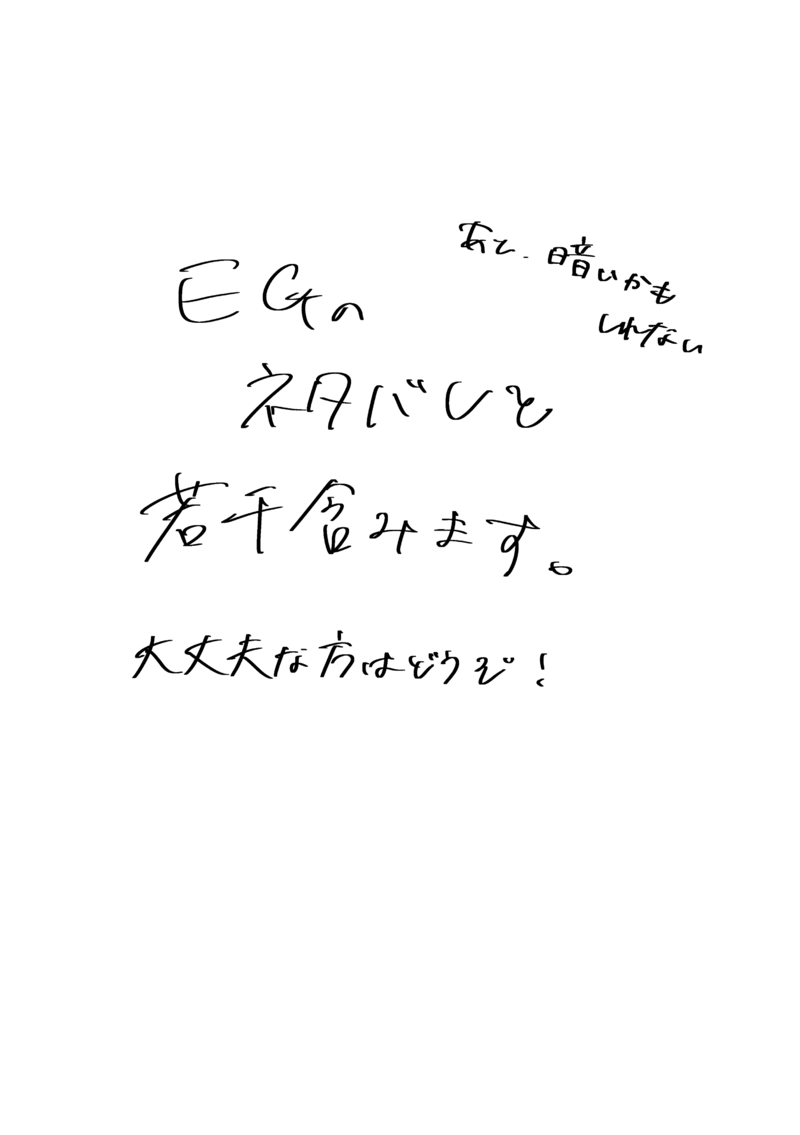 EGの
ネタバレと
若干含みます。
大丈夫な方はどうぞ!
あと、暗いかも
しれない